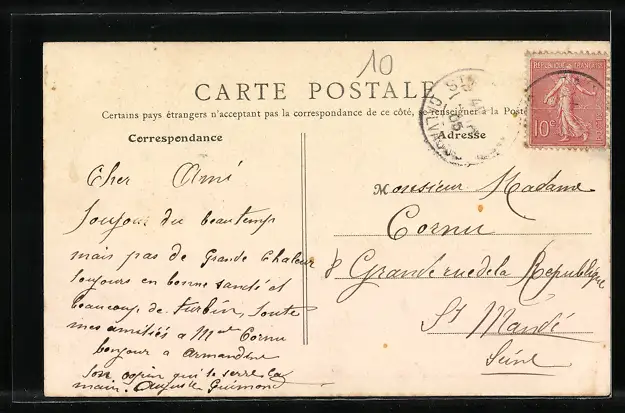 10
CARTE POSTALE
Certains pays étrangers n'acceptant pas la correspondance de ce côté, se renseigner à la Poste
Correspondance
Adresse
REPUBLIQUE FRANÇAISE
10c
CALVADOS
05
Cher Ami
Toujour du beau temps
mais pas de Grande Chaleur
toujours en bonne santé et
beaucoup de turbin, toute
mes amitiés a Mme Cornu
bonjour a Armandine
Son copin qui te serre la
main. Auguste Guimond
Monsieur Madame
Cornu
Grande rue de la Republique
St Mandé
Seine